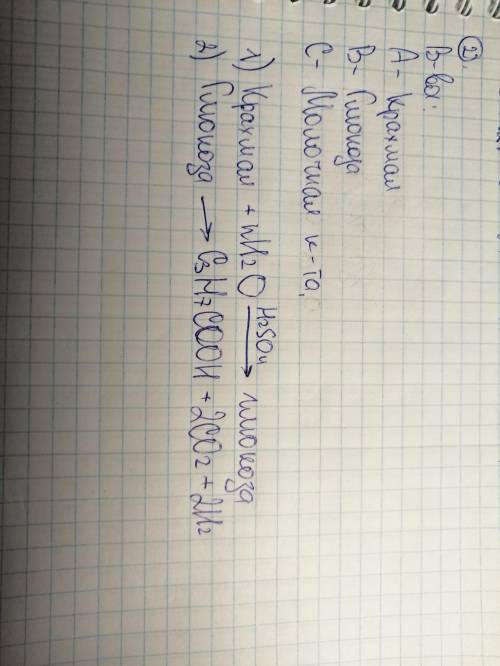 2).
В-ва:
А - Крахмал
В - Глюкоза
С - Молочная к-та,
1) Крахмал + nH2O H2SO4 → глюкоза
2) Глюкоза → C3H7COOH + 2CO2 + 2H2